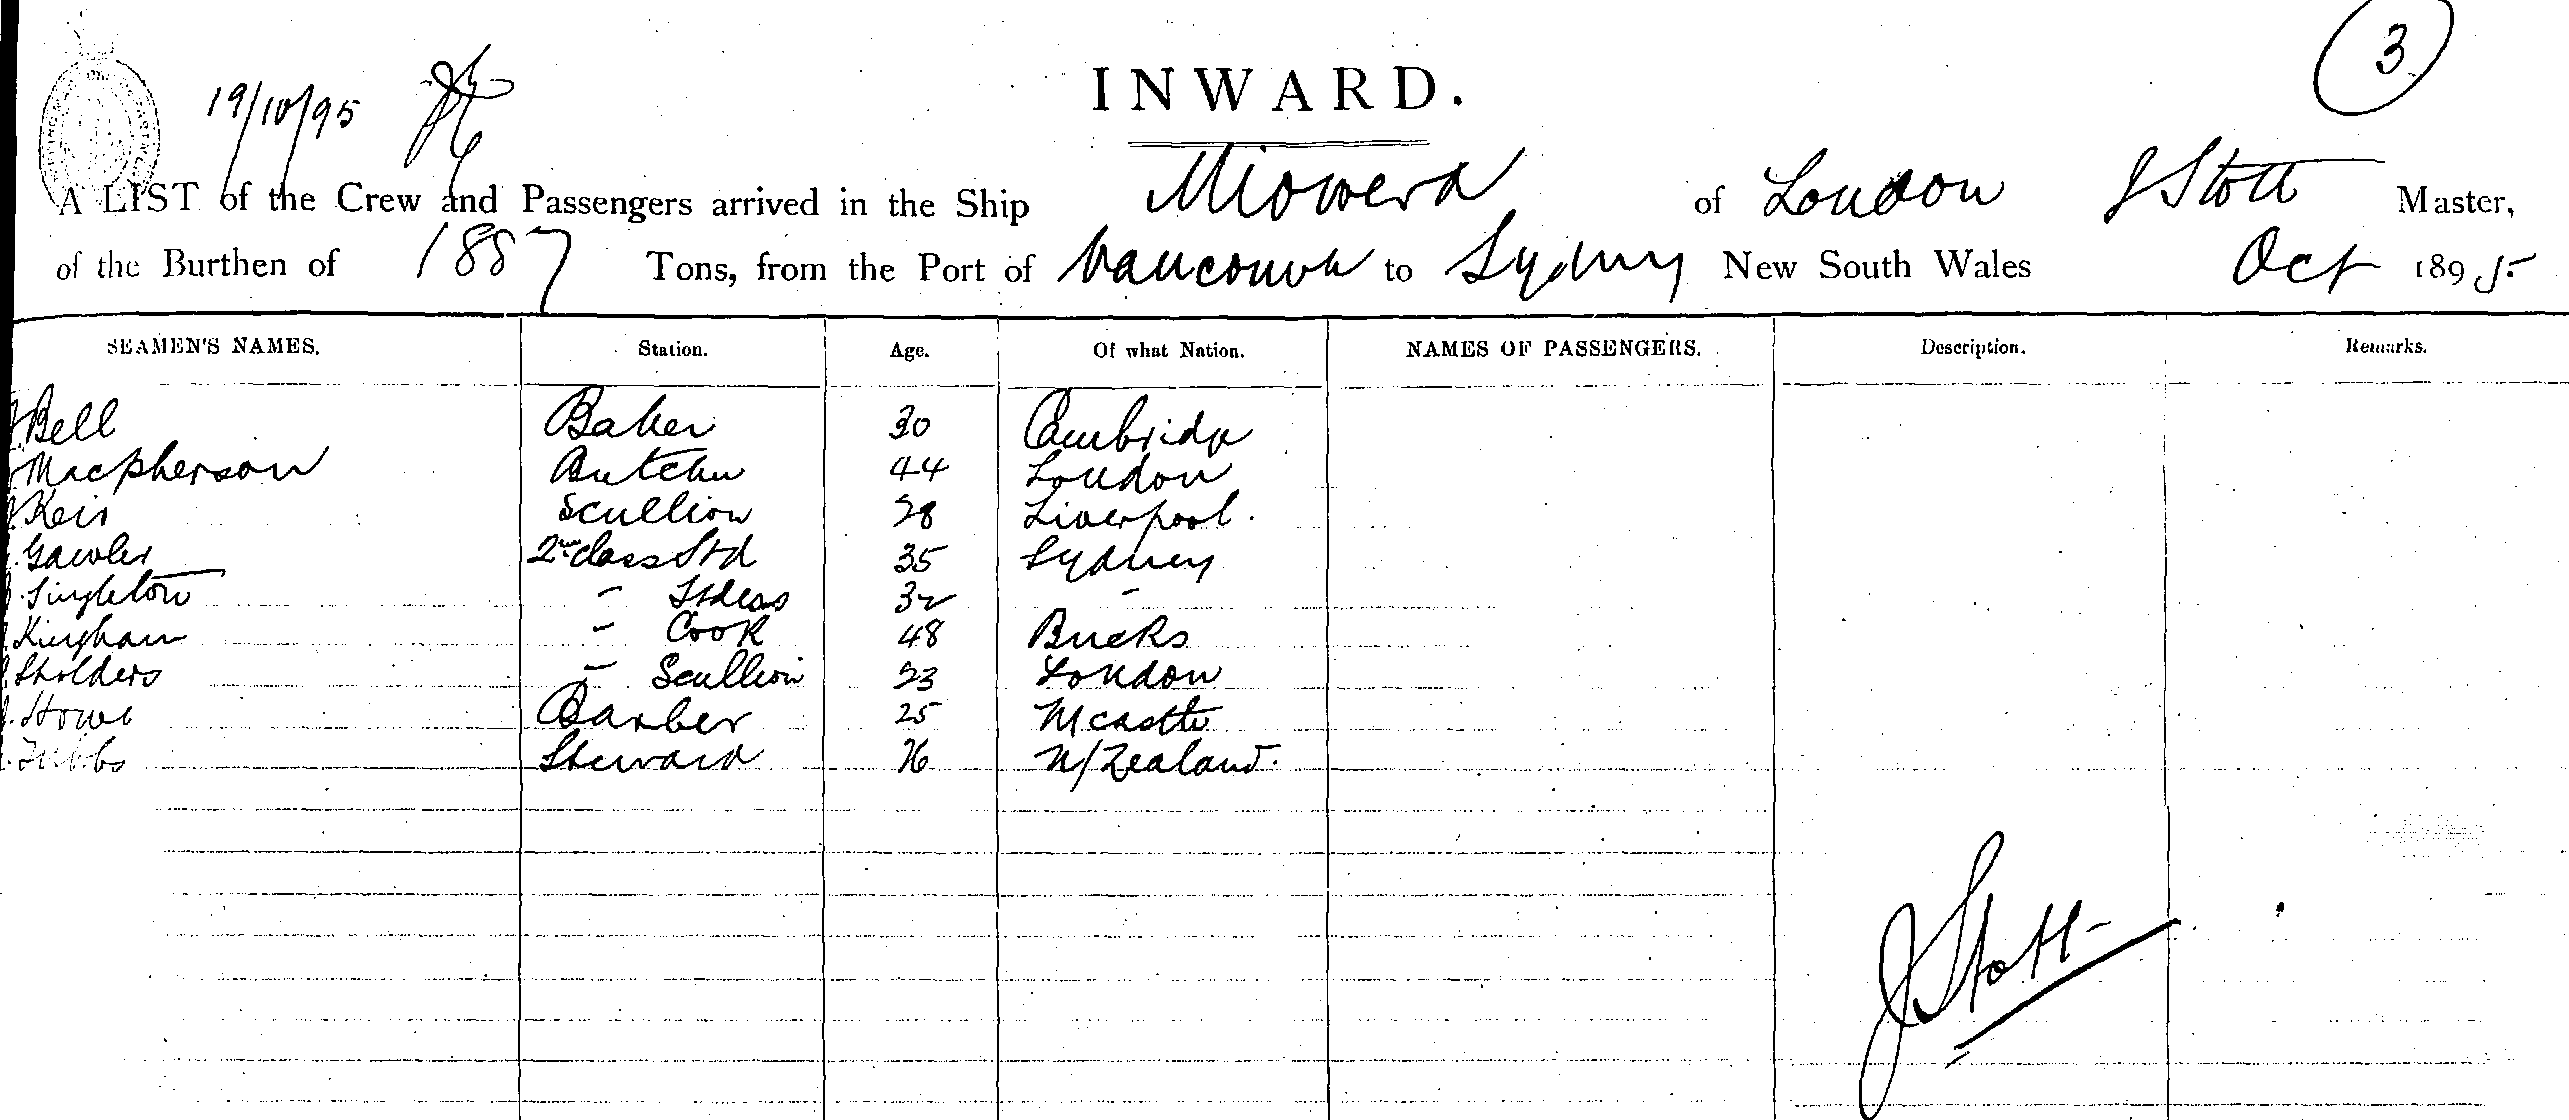 3
19/10/95
INWARD.
A LIST of the Crew and Passengers arrived in the Ship Miowera of London J Stott Master,
of the Burthen of 1887 Tons, from the Port of Vancouver to Sydney New South Wales Oct 1895
SEAMEN'S NAMES. Station. Age. Of what Nation. NAMES OF PASSENGERS. Description. Remarks.
Bell Baker 30 Cambridge
Macpherson Butcher 44 London
Keir Scullion 28 Liverpool.
Gawler 2nd class Std 35 Sydney
Singleton " Stdess 32 "
Kingham " Cook 48 Bucks
Sholders " Scullion 23 London
Howe Barber 25 Ncastle
Tubbs Steward 26 N/Zealand.
J Stott